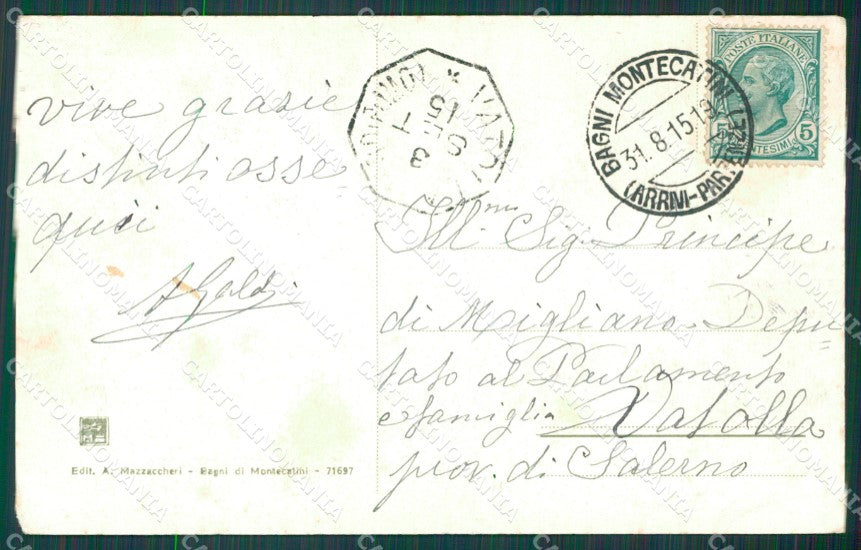 vive grazie
distinti osse
quii
AGaldi
Edit. A. Mazzaccheri - Bagni di Montecatini - 71697
POSTE ITALIANE
5 5
CENTESIMI
BAGNI MONTECATINI
31.8.15.19
(ARRIVI-PAR
VATOLLA
3
SET
15
Ill.mo Sig. Principe
di Migliano - Depu=
tato al Parlamento
e famiglia Vatolla
prov. di Salerno
CARTOLINOMANIA